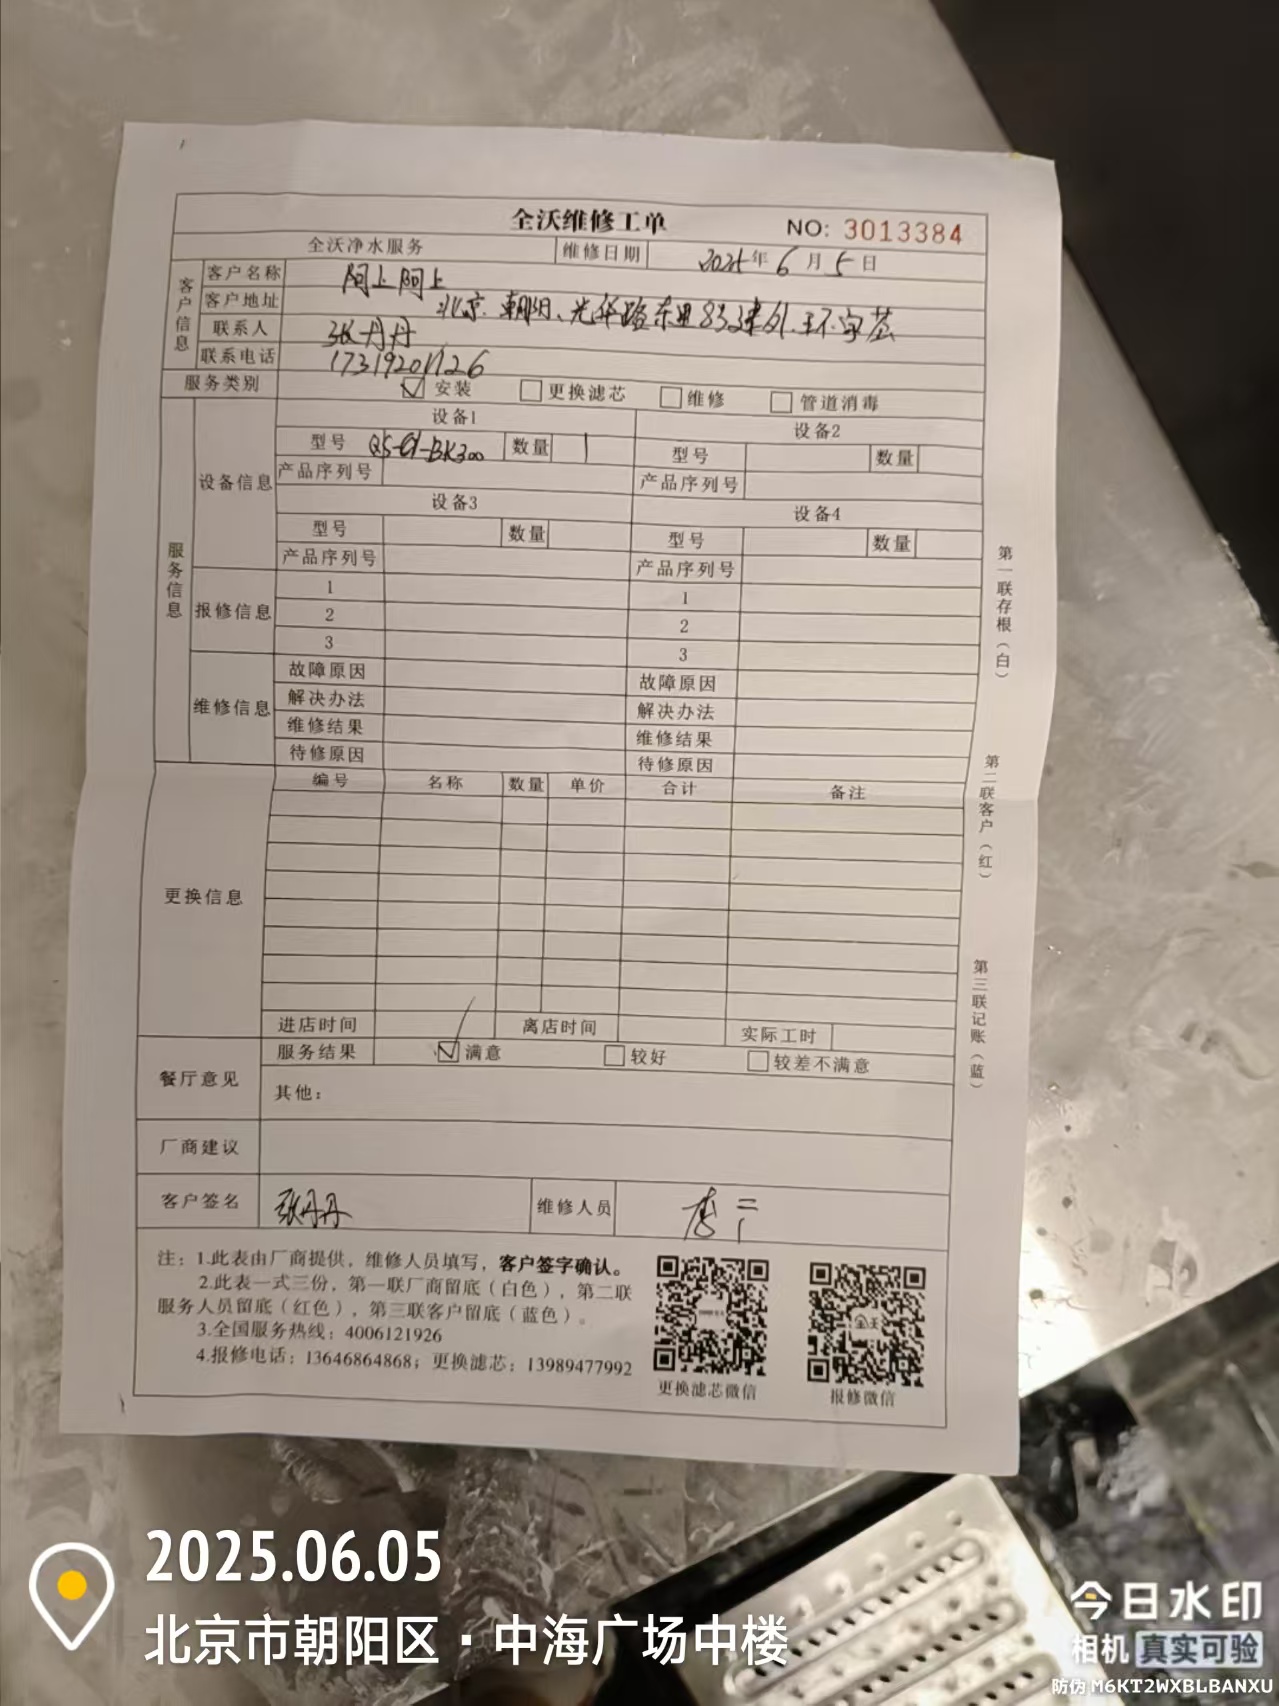 全沃维修工单 NO: 3013384
全沃净水服务 维修日期 2025年6月5日
客户信息
客户名称 阿上阿上
客户地址 北京.朝阳、光华路东里8号建外
联系人 张丹丹
联系电话 17319201126
服务类别 ☑安装 □更换滤芯 □维修 □管道消毒
服务信息
设备信息
设备1 设备2
型号 QS-C1-BK300 数量 1 型号 数量
产品序列号 产品序列号
设备3 设备4
型号 数量 型号 数量
产品序列号 产品序列号
报修信息
1 1
2 2
3 3
维修信息
故障原因 故障原因
解决办法 解决办法
维修结果 维修结果
待修原因 待修原因
更换信息
编号 名称 数量 单价 合计 备注
进店时间 离店时间 实际工时
餐厅意见
服务结果 ☑满意 □较好 □较差不满意
其他：
厂商建议
客户签名 张丹丹 维修人员 李
注：1.此表由厂商提供，维修人员填写，客户签字确认。
2.此表一式三份，第一联厂商留底（白色），第二联
服务人员留底（红色），第三联客户留底（蓝色）。
3.全国服务热线：4006121926
4.报修电话：13646864868；更换滤芯：13989477992
更换滤芯微信 报修微信
第一联存根（白）
第二联客户（红）
第三联记账（蓝）
2025.06.05
北京市朝阳区·中海广场中楼
今日水印
相机 真实可验
防伪 M6KT2WXBLBANXU